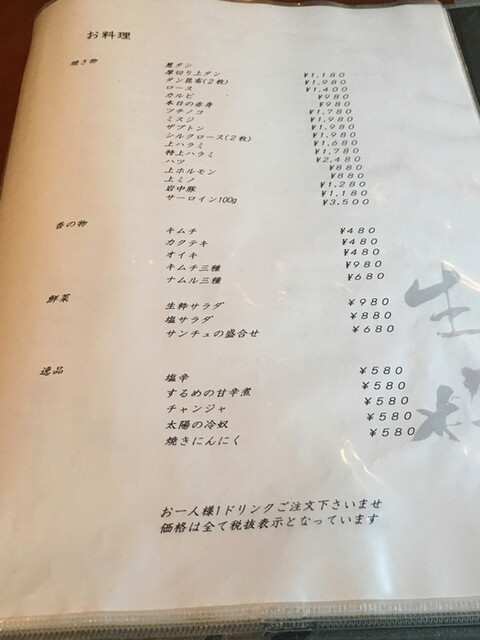 お料理
焼き物
葱タン ¥1,180
厚切り上タン ¥1,980
タン昆布(2枚) ¥1,400
ロース ¥980
カルビ ¥980
本日の赤身 ¥1,780
ツチノコ ¥1,980
ミスジ ¥1,980
ザブトン ¥1,980
シルクロース(2枚) ¥1,680
上ハラミ ¥1,780
特上ハラミ ¥2,480
ハツ ¥880
上ホルモン ¥880
上ミノ ¥1,280
岩中豚 ¥1,180
サーロイン100g ¥3,500
香の物
キムチ ¥480
カクテキ ¥480
オイキ ¥480
キムチ三種 ¥980
ナムル三種 ¥680
鮮菜
生粋サラダ ¥980
塩サラダ ¥880
サンチュの盛合せ ¥680
逸品
塩辛 ¥580
するめの甘辛煮 ¥580
チャンジャ ¥580
太陽の冷奴 ¥580
焼きにんにく ¥580
生粋
お一人様1ドリンクご注文下さいませ
価格は全て税抜表示となっています